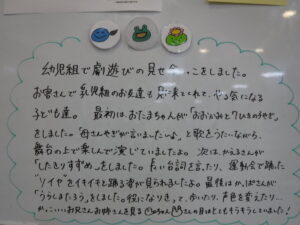 幼児組で劇遊びの見せ合っこをしました。
お客さんで乳児組のお友達も見に来てくれて、やる気になる
子ども達。 最初はおたまちゃんが「おおかみと7ひきのこやぎ」
をしました。「母さんやぎが言いました〜いな」と歌をうたいながら、
舞台の上で楽しんで演じていましたよ。次は、かえるさんが
「したきりすずめ」をしました。長い台詞を言たり、運動会で踊た
"ソイヤ"をイキイキと踊る姿が見られましたよ。最後はかっぱさんが
「うらしまたろう」をしました。役になりきって、歩いたり、声色を変えたり…
かっこいいお兄さんお姉さんを見る ちゃん さんの目はとてもキラキラしていました!